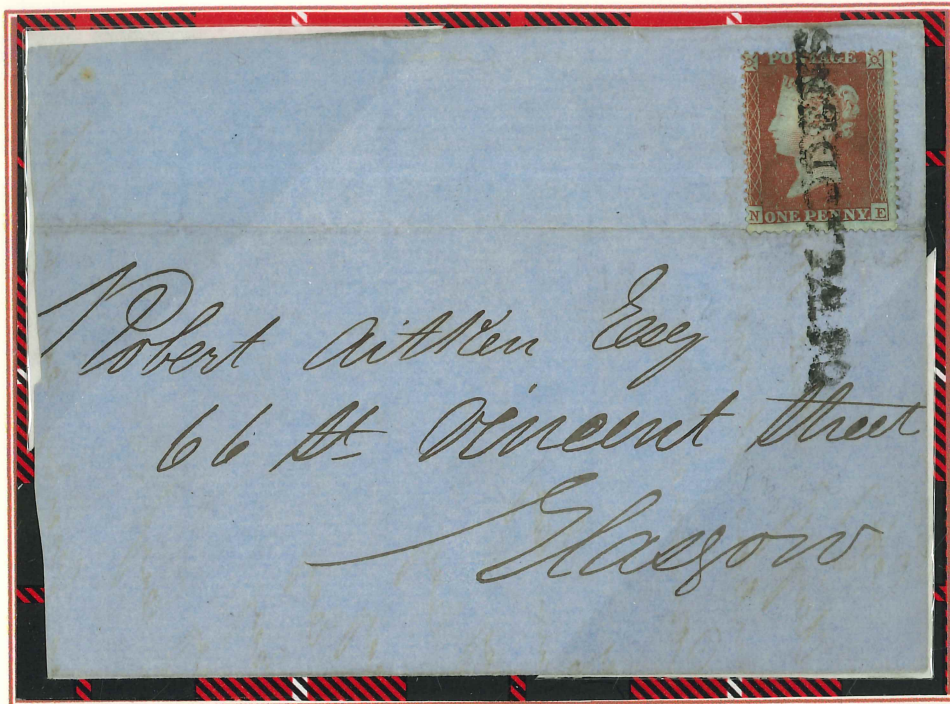 POSTAGE
N ONE PENNY E
Robert Aitken Esq
66 St Vincent Street
Glasgow